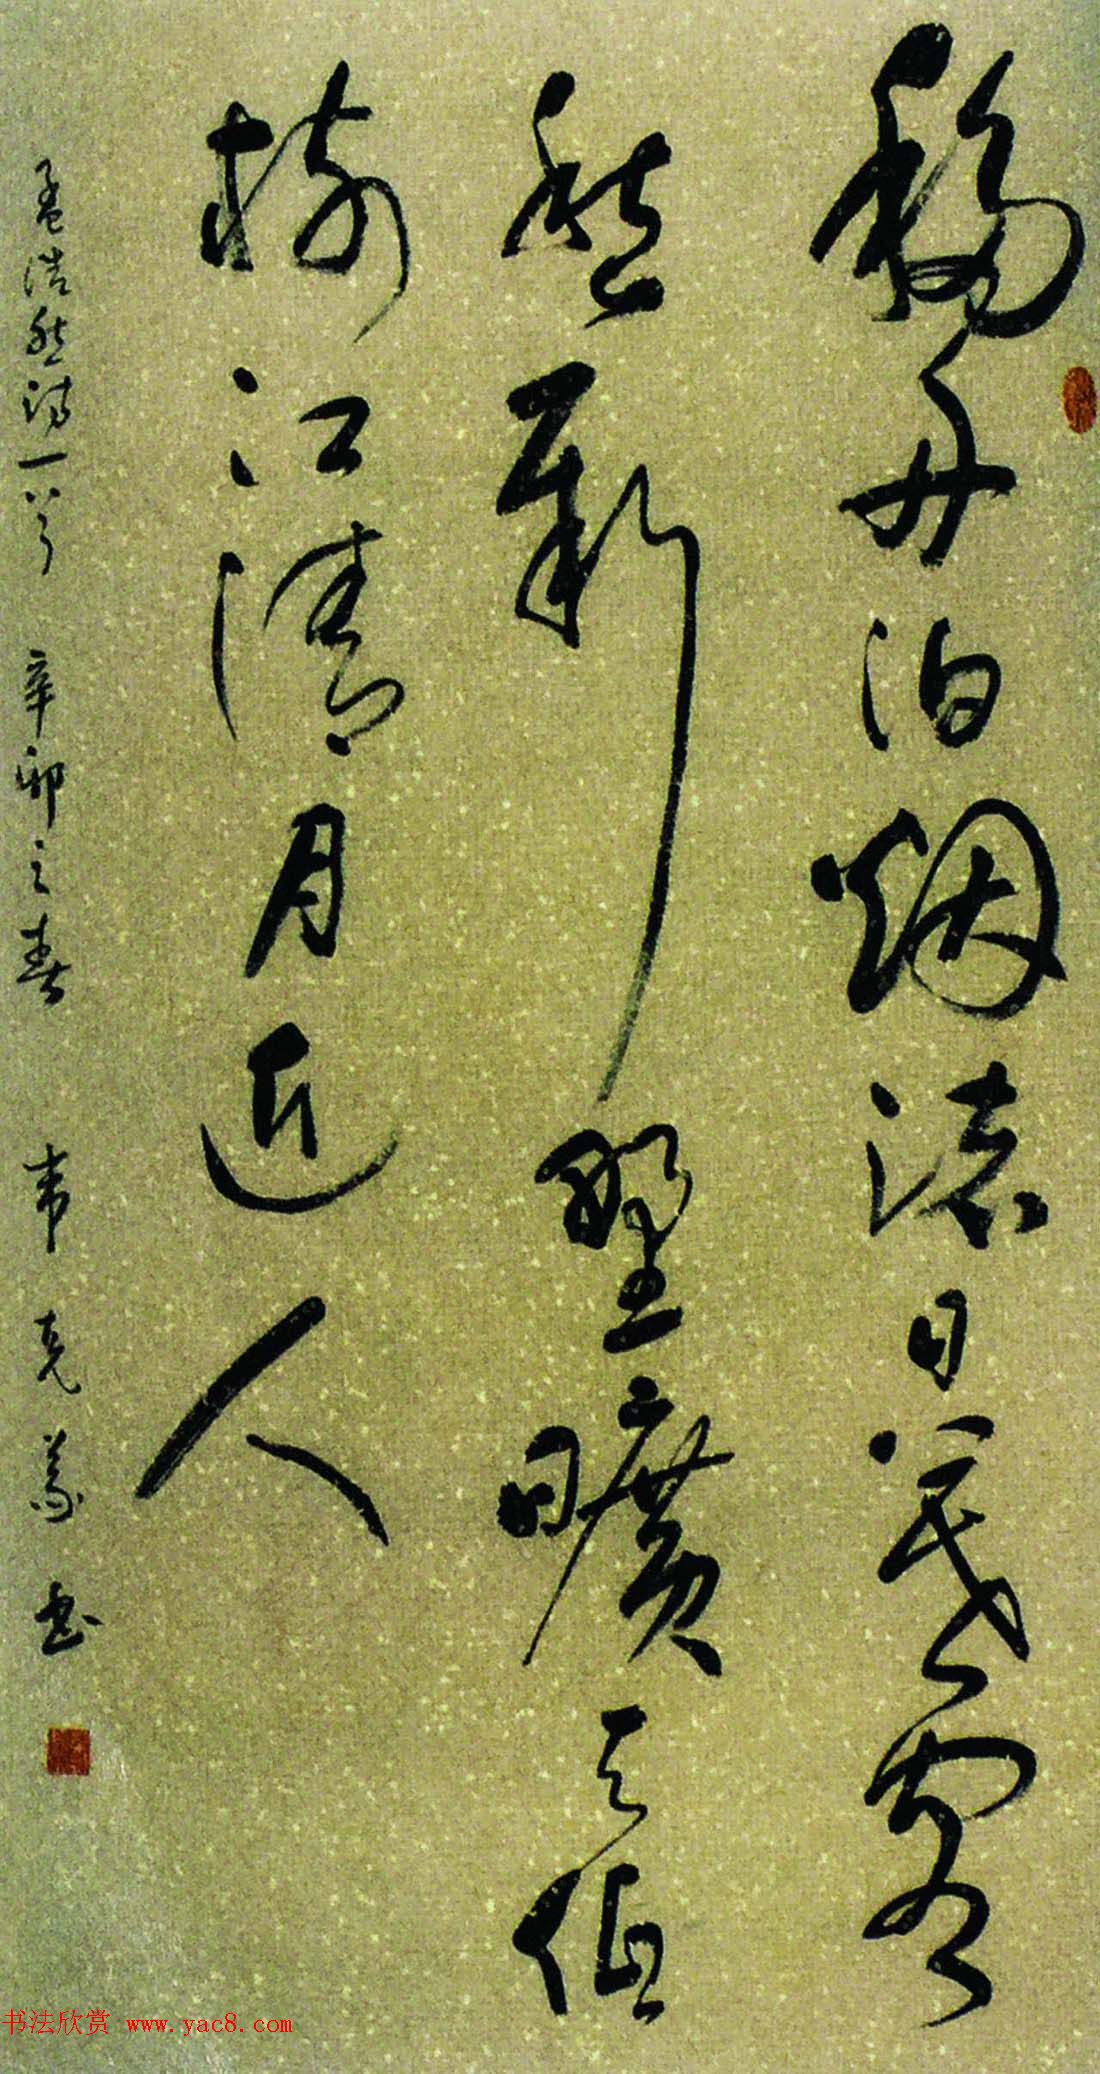 移舟泊烟渚日暮客
愁新野曠天低
樹江清月近人
孟浩然詩一首 辛卯之春 韋克義書
书法欣赏 www.yac8.com